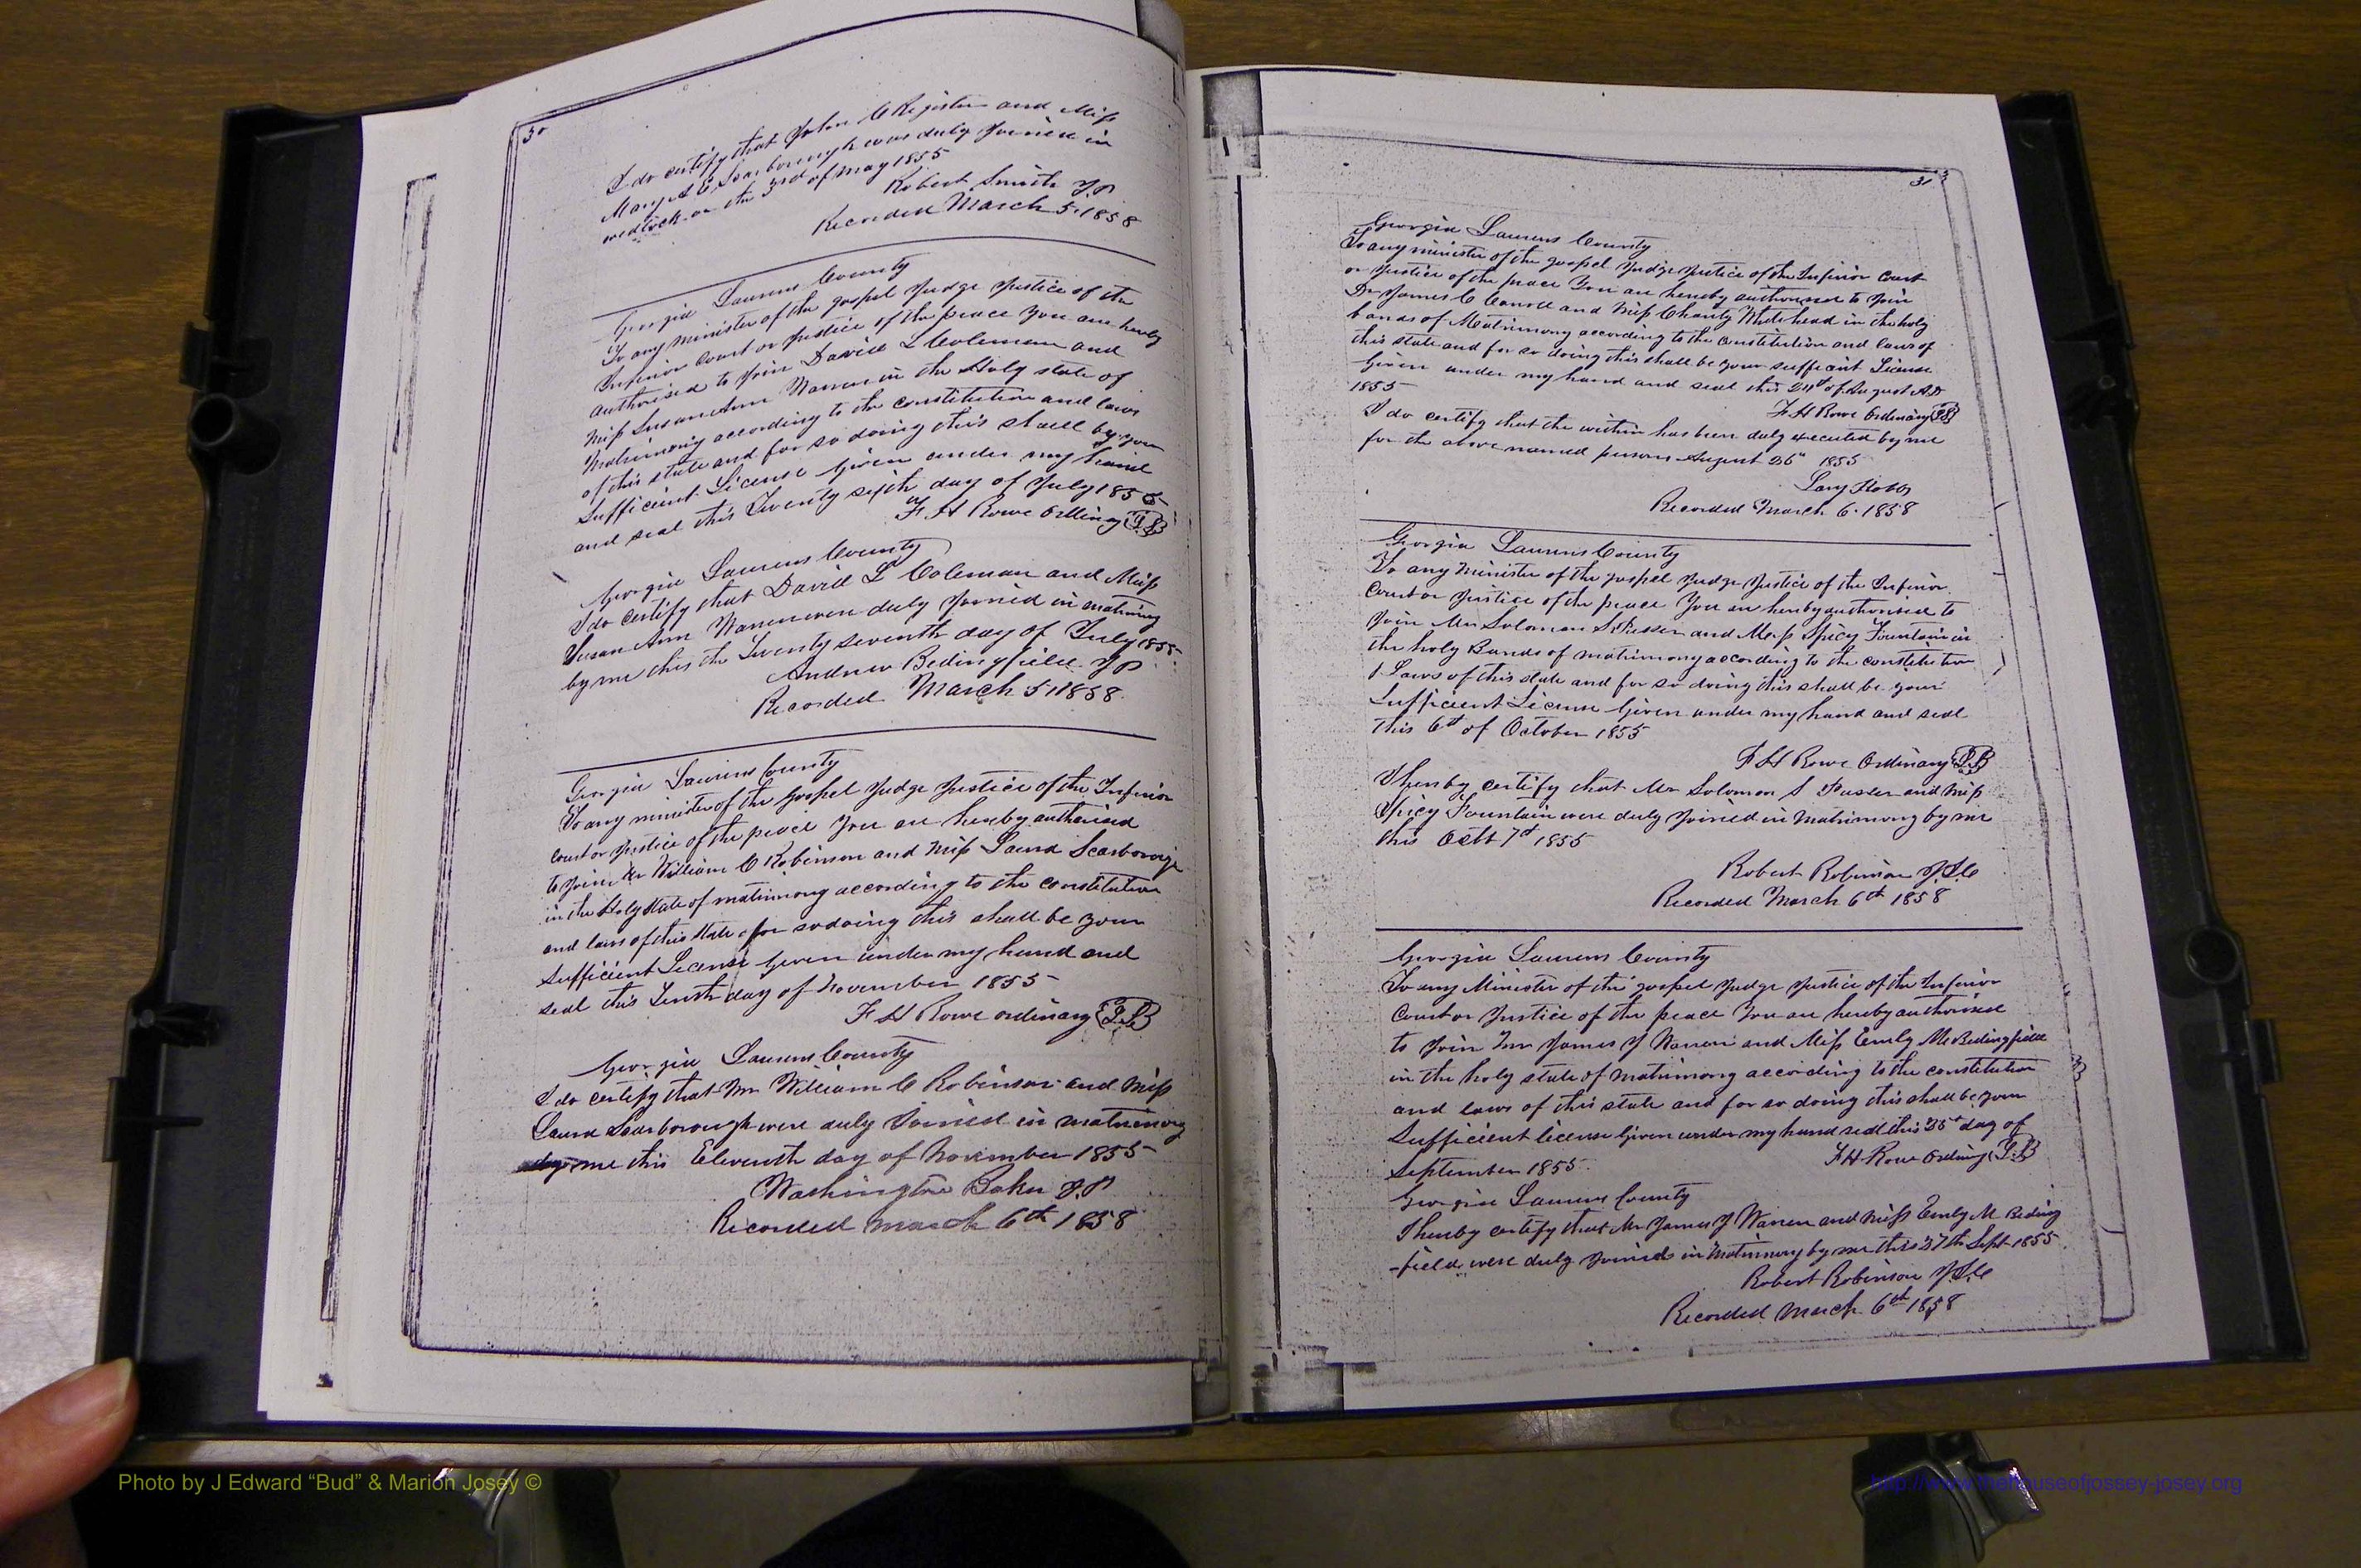 30
I do certify that John C Register and Miss
Margret E Scarborough was duly Joined in
wedlock on the 3rd of May 1855
Robert Smith J.P
Recorded March 5. 1858
Georgia Laurens County
To any minister of the gospel Judge Justice of the
Inferior Court or Justice of the peace You are hereby
authorised to Join David L Coleman and
Miss Susan Ann Warren in the Holy state of
Matrimony according to the constitution and laws
of this state and for so doing this shall be your
sufficient License Given under my hand
and seal this Twenty sixth day of July 1855
F H Rowe Ordinary
Georgia Laurens County
I do certify that David L Coleman and Miss
Susan Ann Warren were duly Joined in matrimony
by me this the Twenty seventh day of July 1855
Andrew Bedingfield J P
Recorded March 5, 1858
Georgia Laurens County
To any minister of the Gospel Judge Justice of the Inferior
Court or Justice of the peace You are hereby authorised
to Join Mr William C Robinson and Miss Laura Scarborough
in the Holy state of matrimony according to the constitution
and laws of this state & for so doing this shall be your
sufficient License Given under my hand and
seal this Tenth day of November 1855
F H Rowe ordinary
Georgia Laurens County
I do certify that Mr William C Robinson and Miss
Laura Scarborough were duly Joined in matrimony
by me this Eleventh day of November 1855
Washington Baker J.P
Recorded March 6th 1858
31
Georgia Laurens County
To any minister of the gospel Judge Justice of the Inferior Court
or Justice of the peace You are hereby authorised to Join
Dr James C Carroll and Miss Charity Whitehead in the holy
bands of Matrimony according to the Constitution and laws of
this state and for so doing this shall be your sufficient License
Given under my hand and seal this of August AD
1855
F H Rowe Ordinary
I do certify that the within has been duly executed by me
for the above named persons August 26th 1855
Lary Hobbs
Recorded March 6. 1858
Georgia Laurens County
To any Minister of the gospel Judge Justice of the Inferior
Court or Justice of the peace You are hereby authorised to
Join Mr Solomon S and Miss Spicy Fountain in
the holy Bands of matrimony according to the constitution
& Laws of this state and for so doing this shall be your
sufficient License Given under my hand and seal
This 6th of October 1855
F H Rowe Ordinary
I hereby certify that Mr Solomon S and Miss
Spicy Fountain were duly Joined in Matrimony by me
this Octr 7th 1855
Robert Robinson J.I.C
Recorded March 6th 1858
Georgia Laurens County
To any Minister of the gospel Judge Justice of the Inferior
Court or Justice of the peace You are hereby authorised
to Join Mr James J Warren and Miss Emily M Bedingfield
in the holy state of matrimony according to the constitution
and laws of this state and for so doing this shall be your
sufficient license Given under my hand seal this 25th day of
September 1855.
F H Rowe Ordinary
Georgia Laurens County
I hereby certify that Mr James J Warren and Miss Emily M Beding
-field were duly Joined in Matrimony by me this 27th Sept 1855
Robert Robinson J.I.C
Recorded March 6th 1858
Photo by J Edward “Bud” & Marion Josey ©
http://www.thehouseofjossey-josey.org